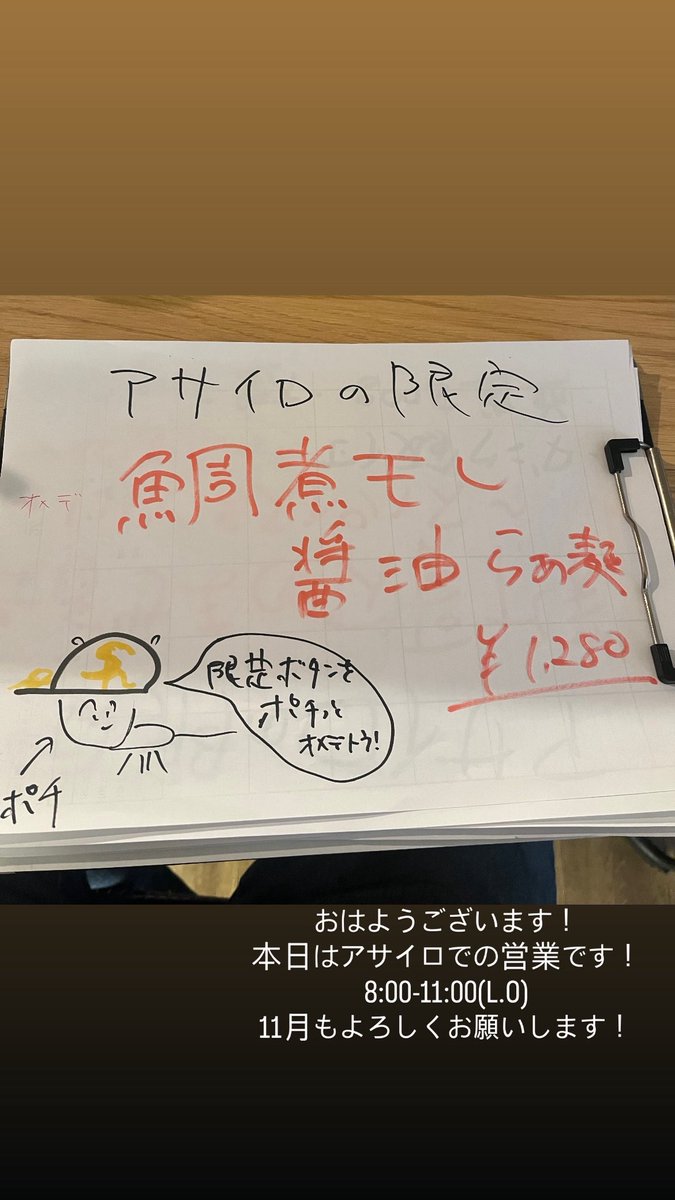 アサイロの限定
オメデ
鯛煮干し
醤油らぁ麺
¥1,280
限定ボタンを
ポチッと
オメデトウ!
ポチ
おはようございます！
本日はアサイロでの営業です！
8:00-11:00(L.O)
11月もよろしくお願いします！